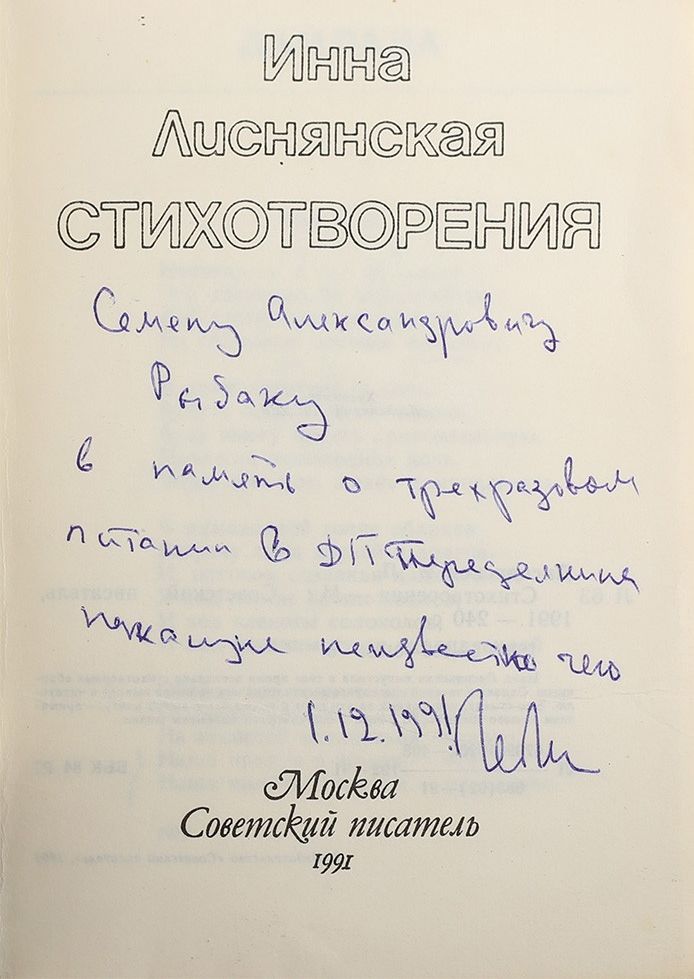 Инна
Лиснянская
СТИХОТВОРЕНИЯ
Семену Александровичу
Рыбаку
в память о трехразовом
питании в ДП Переделкина
накануне неизвестно чего
1.12.1991
Москва
Советский писатель
1991